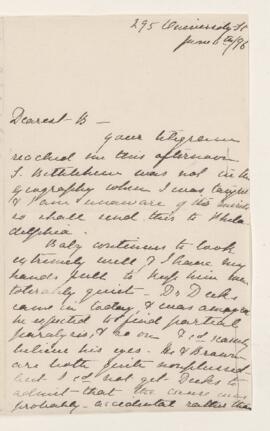 295 University St
June 6th/96
Dearest B —
your telegram
reached me this afternoon
S. Bethlehem was not in the
geography when I was taught
& I am unaware of the
so shall send this to Phila
delphia.
Baby continues to look
extremely well & I have my
hands full to keep him
tolerably quiet. Dr Deeks
came in today, & was amazed
he expected to find partial
paralysis, & so on & cd scarcely
believe his eyes. He & Brown
are both quite nonplussed
but I cd not get Deeks to
admit that the cure was
probably accidental rather than